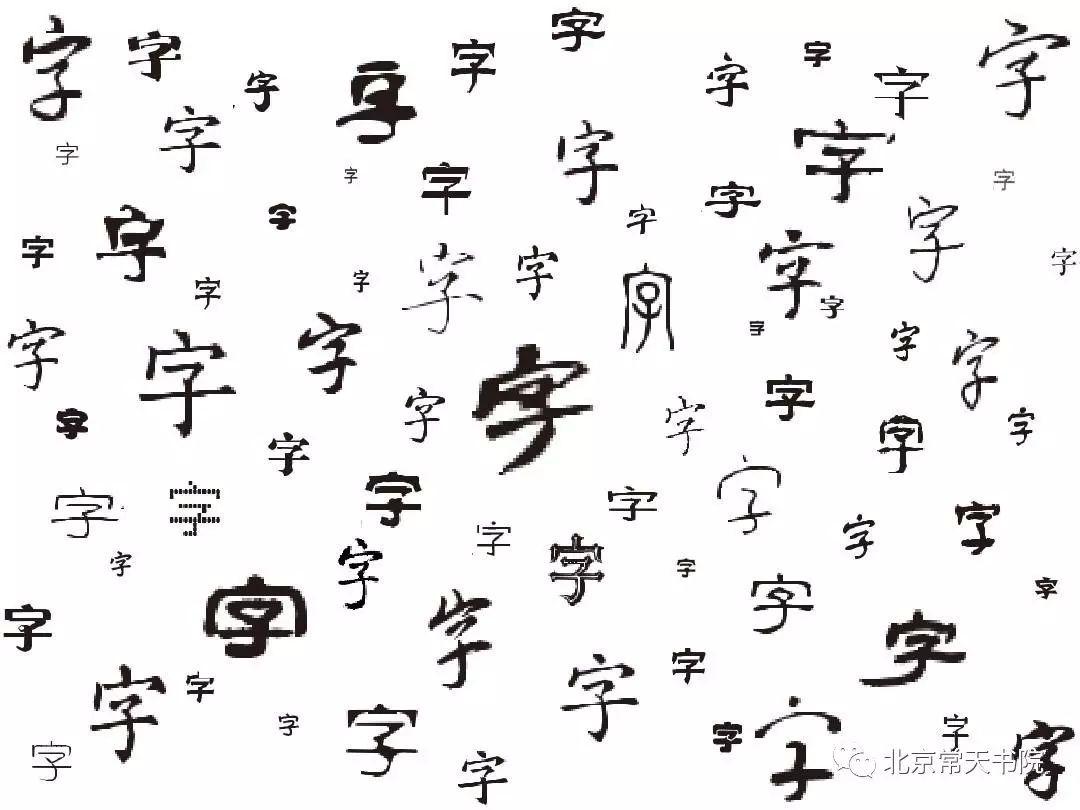 字 字 字 字 字 字 字 字 字 字 字 字
字 字 字 字 字 字 字 字 字 字
字 字 字 字 字 字 字 字 字 字
字 字 字 字 字 字 字 字 字 字 字
字 字 字 字 字 字 字 字 字 字 字
字 字 字 字 字 字 字 字 字
字 字 字 字 字 字 字 字 字 字 字 字
北京常天书院